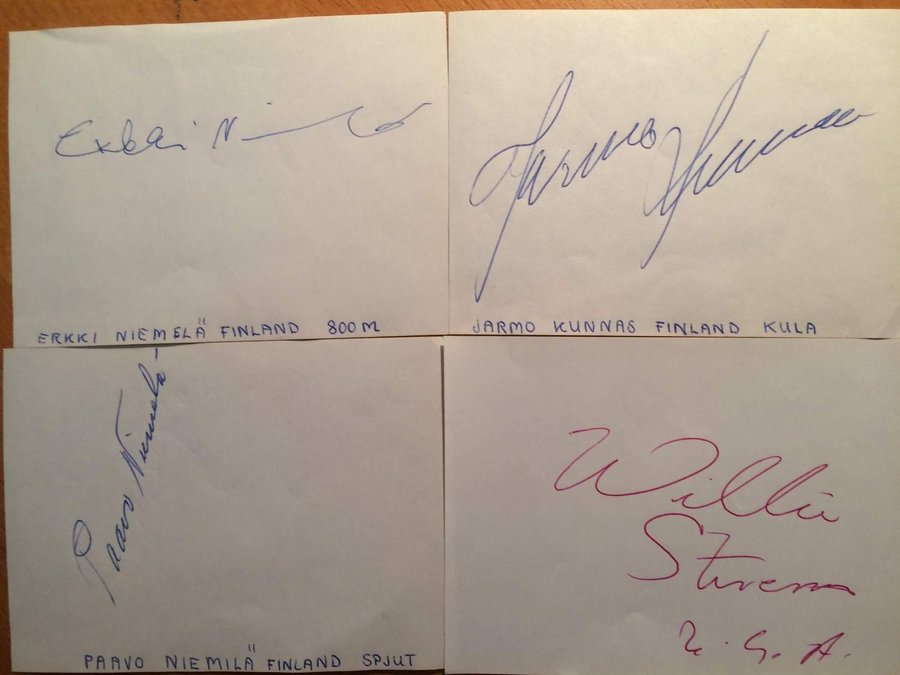 Erkki Niemelä
ERKKI NIEMELÄ FINLAND 800M
Jarmo Kunnas
JARMO KUNNAS FINLAND KULA
Paavo Niemelä
PAAVO NIEMILÄ FINLAND SPJUT
Willie
Stevens
U.S.A.